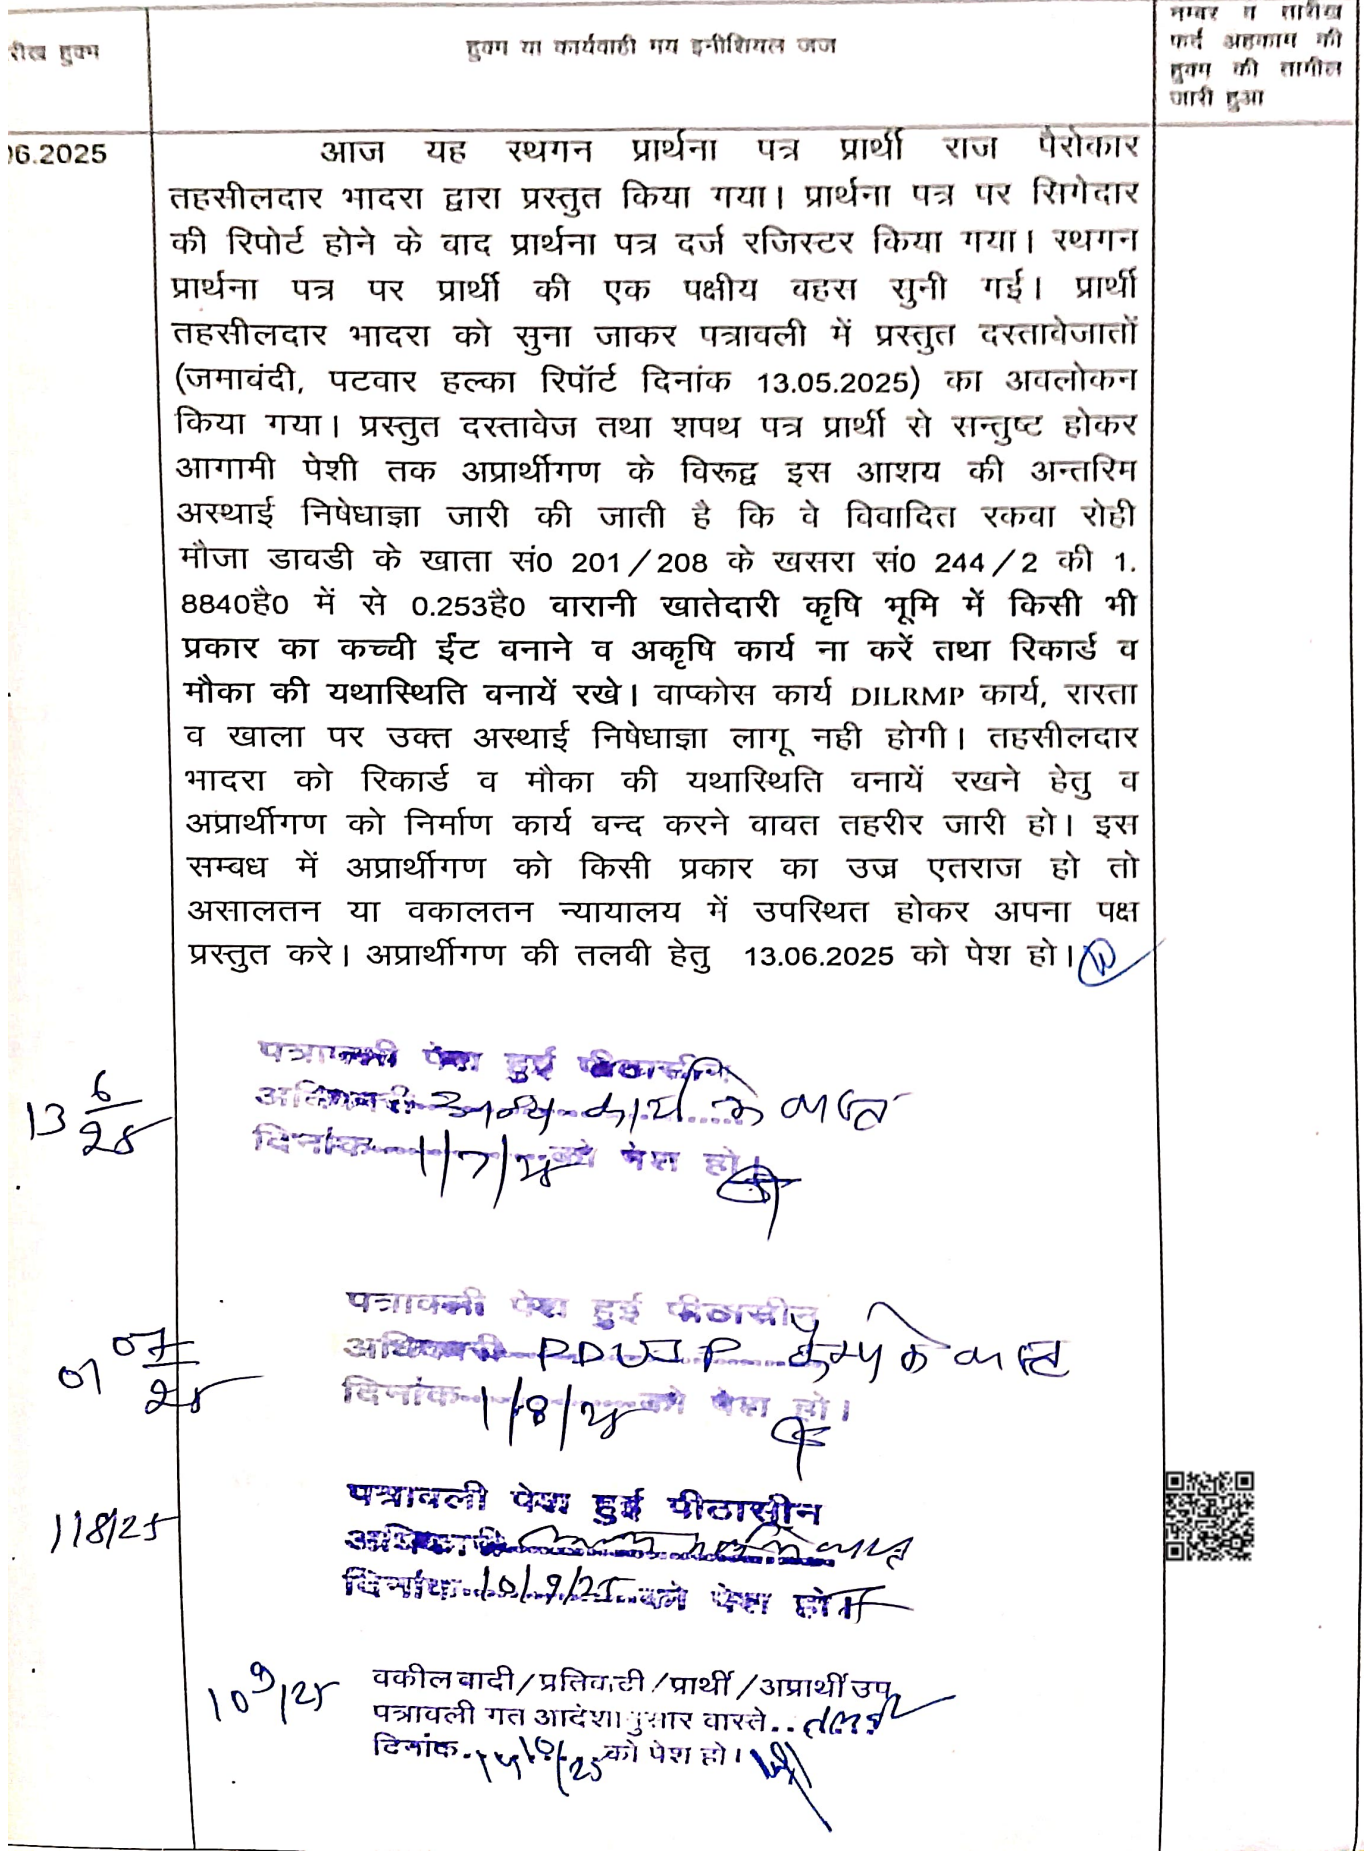 रीख हुक्म
हुक्म या कार्यवाही मय इनीशियल जज
नम्बर व तारीख
फर्द अहकाम की
हुक्म की तामील
जारी हुआ
06.2025
आज यह स्थगन प्रार्थना पत्र प्रार्थी राज पैरोकार
तहसीलदार भादरा द्वारा प्रस्तुत किया गया। प्रार्थना पत्र पर सिगेदार
की रिपोर्ट होने के वाद प्रार्थना पत्र दर्ज रजिस्टर किया गया। स्थगन
प्रार्थना पत्र पर प्रार्थी की एक पक्षीय वहस सुनी गई। प्रार्थी
तहसीलदार भादरा को सुना जाकर पत्रावली में प्रस्तुत दस्तावेजातों
(जमाबंदी, पटवार हल्का रिपॉर्ट दिनांक 13.05.2025) का अवलोकन
किया गया। प्रस्तुत दस्तावेज तथा शपथ पत्र प्रार्थी से सन्तुष्ट होकर
आगामी पेशी तक अप्रार्थीगण के विरूद्व इस आशय की अन्तरिम
अस्थाई निषेधाज्ञा जारी की जाती है कि वे विवादित रकवा रोही
मौजा डावडी के खाता सं0 201/208 के खसरा सं0 244/2 की 1.
8840है0 में से 0.253है0 वारानी खातेदारी कृषि भूमि में किसी भी
प्रकार का कच्ची ईट बनाने व अकृषि कार्य ना करें तथा रिकार्ड व
मौका की यथास्थिति बनायें रखे। वाप्कोस कार्य DILRMP कार्य, रास्ता
व खाला पर उक्त अस्थाई निषेधाज्ञा लागू नही होगी। तहसीलदार
भादरा को रिकार्ड व मौका की यथास्थिति वनायें रखने हेतु व
अप्रार्थीगण को निर्माण कार्य वन्द करने वावत तहरीर जारी हो। इस
सम्बध में अप्रार्थीगण को किसी प्रकार का उज्र एतराज हो तो
असालतन या वकालतन न्यायालय में उपस्थित होकर अपना पक्ष
प्रस्तुत करे। अप्रार्थीगण की तलवी हेतु 13.06.2025 को पेश हो।
पत्रावली पेश हुई पीठासीन
13 6/25 अधिकारी अन्य कार्य के व्यस्त
दिनांक 1/7/25 को पेश हो।
पत्रावली पेश हुई पीठासीन
01 07/25 अधिकारी PDUJP कैम्प के व्यस्त
दिनांक 1/8/25 को पेश हो।
पत्रावली पेश हुई पीठासीन
1/8/25 अधिकारी व्यस्त
दिनांक 10/9/25 को पेश हो
10 9/25 वकील वादी/प्रतिवादी/प्रार्थी/अप्रार्थी उप
पत्रावली गत आदेशानुसार वास्ते.. तलबी
दिनांक. को पेश हो।